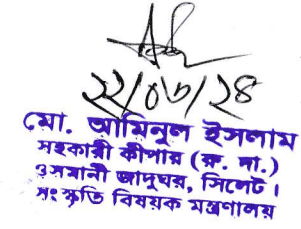 ২২/০৬/২৪
মো. আমিনুল ইসলাম
সহকারী কীপার (রু. দা.)
ওসমানী জাদুঘর, সিলেট।
সংস্কৃতি বিষয়ক মন্ত্রণালয়